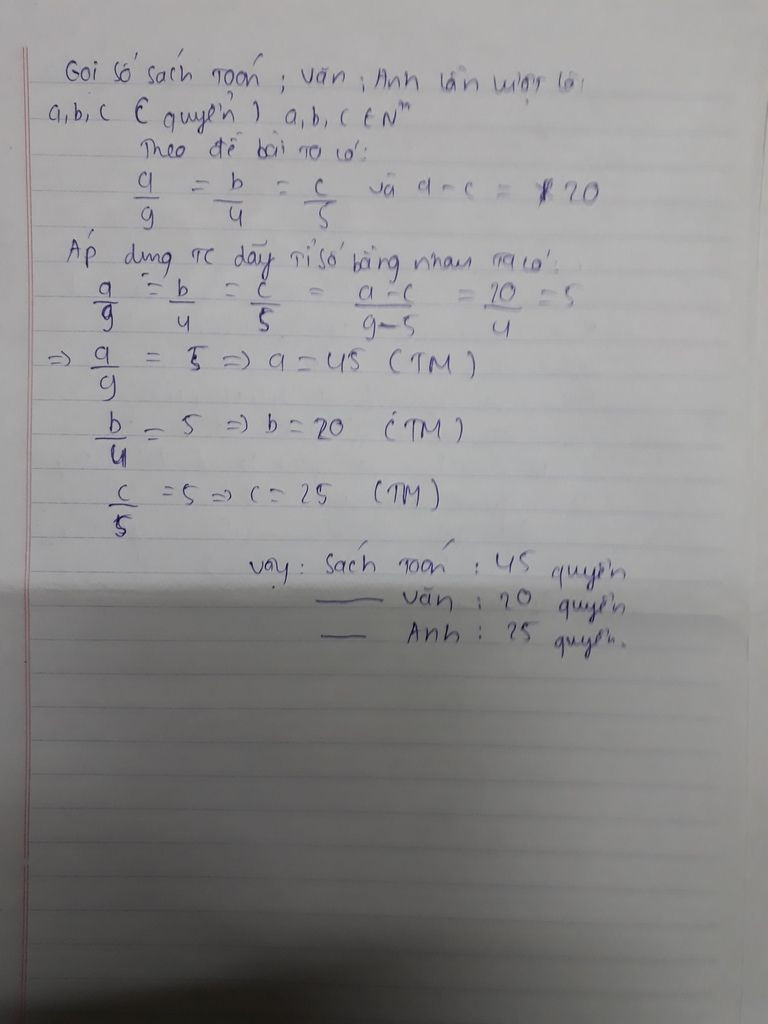 Gọi số sách Toán ; Văn ; Anh lần lượt là:
a, b, c ( quyển ) a, b, c ∈ N*
Theo đề bài ta có:
a/9 = b/4 = c/5 và a - c = 20
Áp dụng TC dãy tỉ số bằng nhau ta có:
a/9 = b/4 = c/5 = a-c/9-5 = 20/4 = 5
=> a/9 = 5 => a = 45 (TM)
b/4 = 5 => b = 20 (TM)
c/5 = 5 => c = 25 (TM)
Vậy: Sách Toán : 45 quyển
— Văn : 20 quyển
— Anh : 25 quyển.